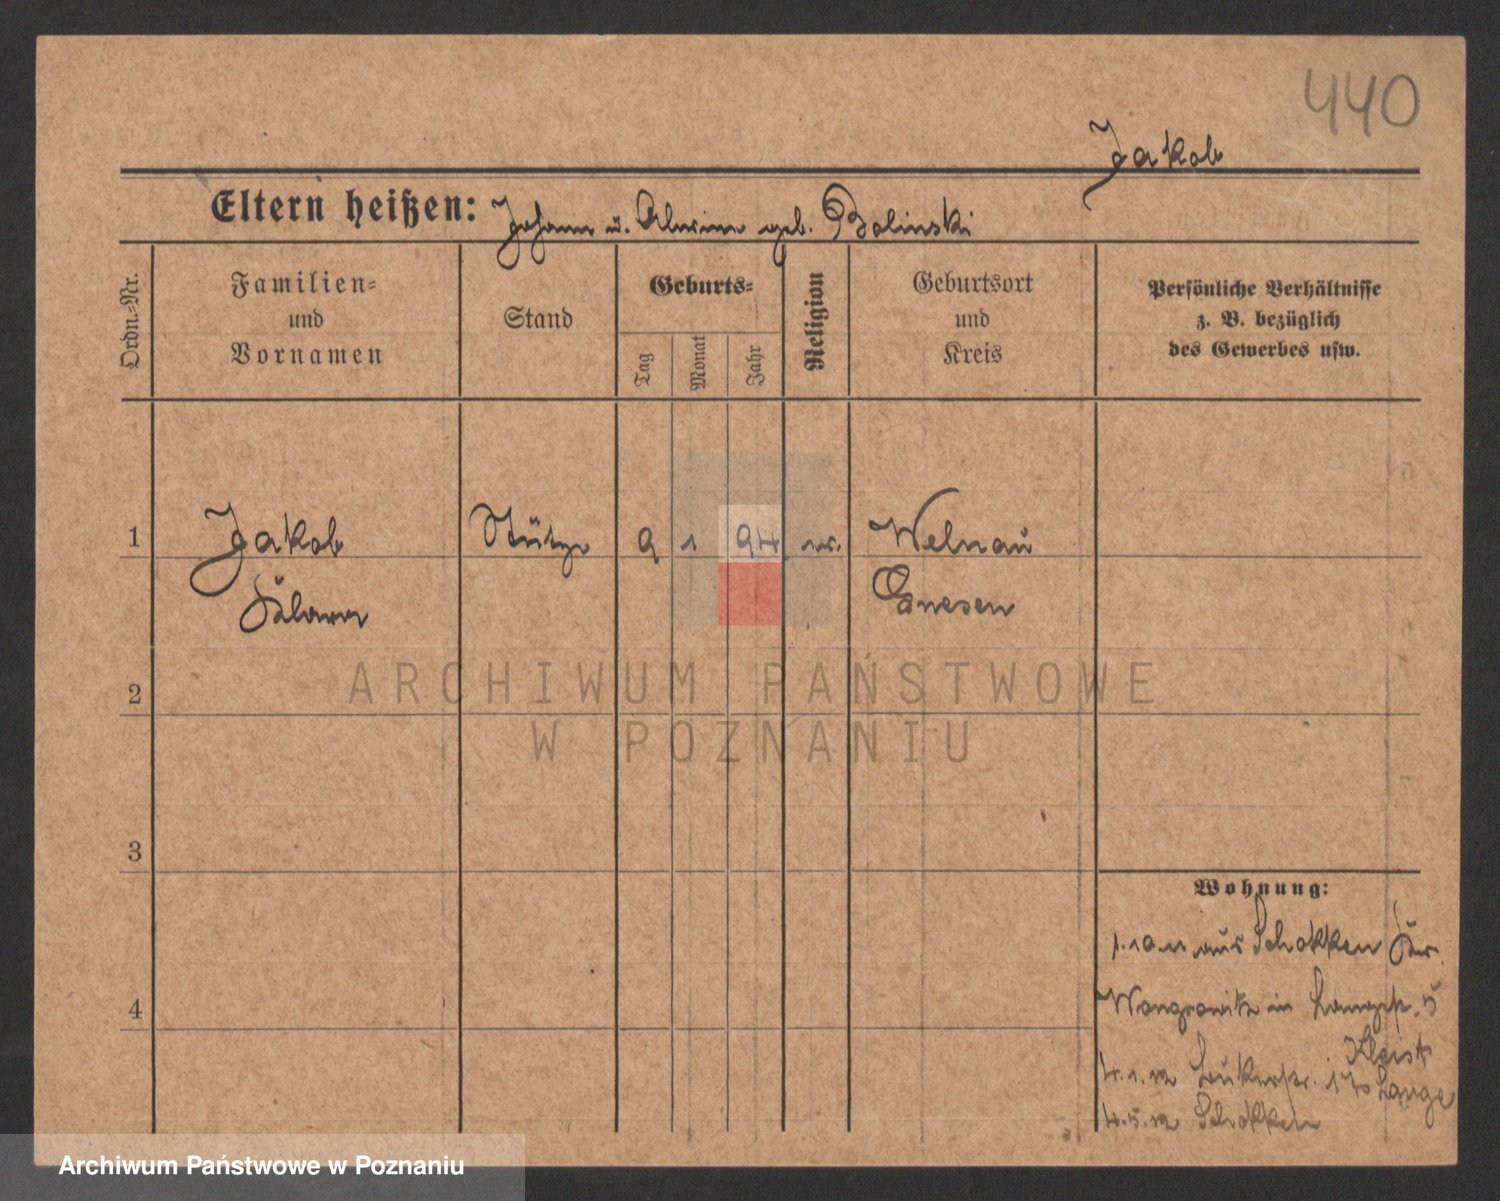 440
Jakob
Eltern heißen: Johann u. Alwine geb. Bolinski
Ordn.-Nr.
Familien-
und
Vornamen
Stand
Geburts-
Tag
Monat
Jahr
Religion
Geburtsort
und
Kreis
Persönliche Verhältnisse
z. B. bezüglich
des Gewerbes usw.
1 Jakob Stütze 9 1 94 Welnau
Klara Gnesen
ARCHIWUM PAŃSTWOWE
W POZNANIU
2
3
4
Wohnung:
1.10.11 aus Schokken Kr.
Wongrowitz in Langestr. 5
Kleist
4.1.12 b. Lange
4.5.12 Schokken
Archiwum Państwowe w Poznaniu